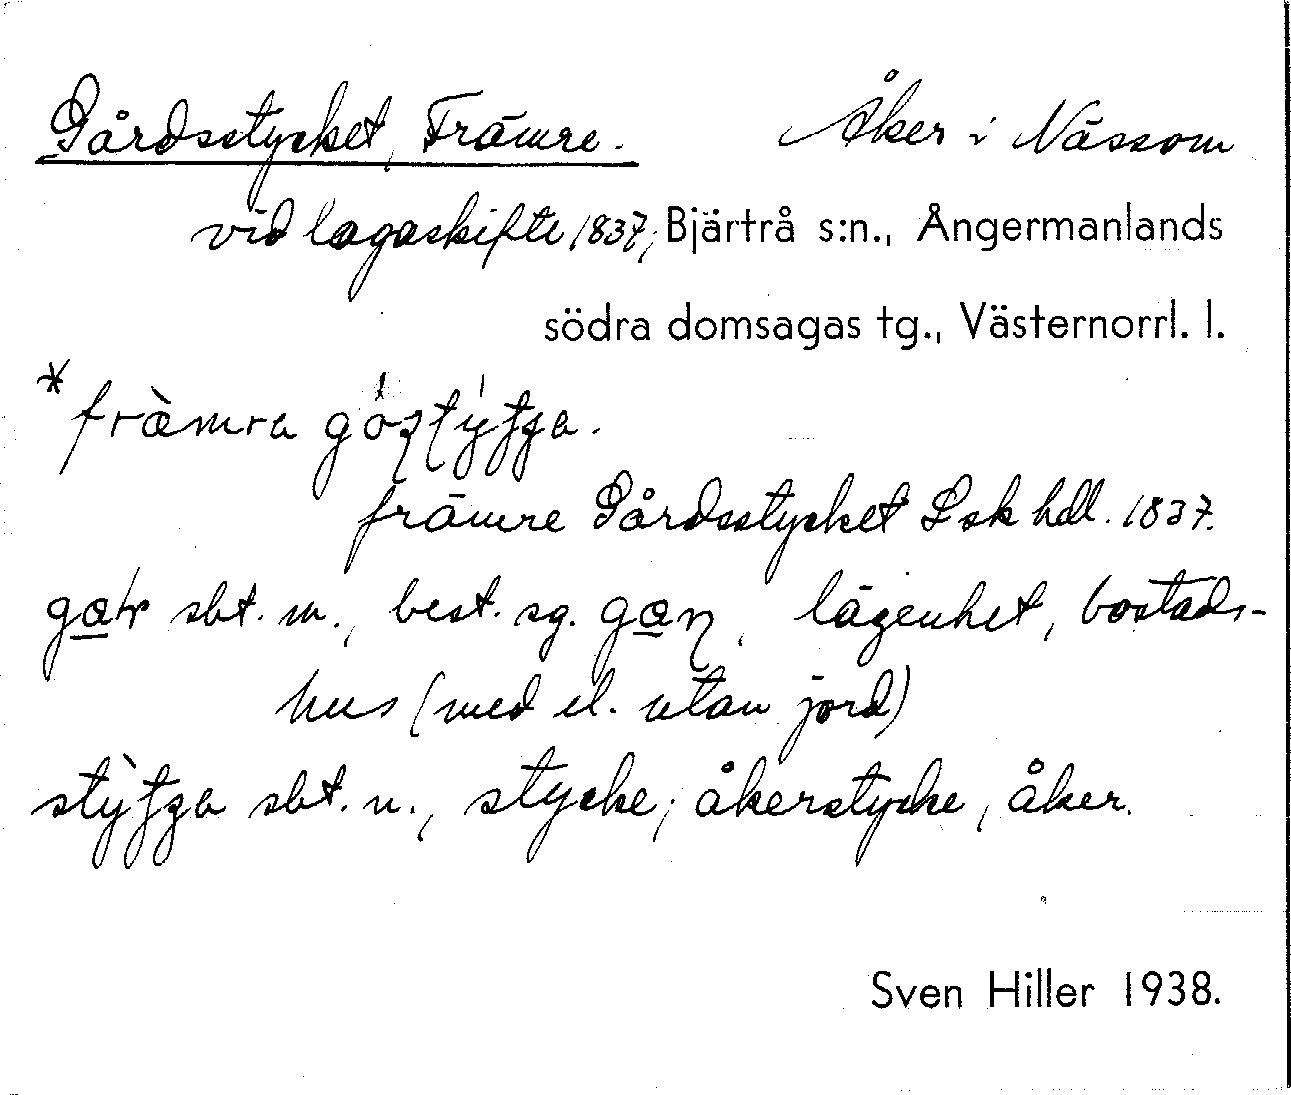 Gårdsstycket, Främre. Åker i Nässom
vid lagaskifte 1837, Bjärtrå s:n., Ångermanlands
södra domsagas tg., Västernorrl. l.
främre Gårdsstycket Lsk hdl. 1837.
sbt. m., best. sg. lägenhet, bostads-
hus (med el. utan jord)
sbt. n., stycke; åkerstycke, åker.
Sven Hiller 1938.